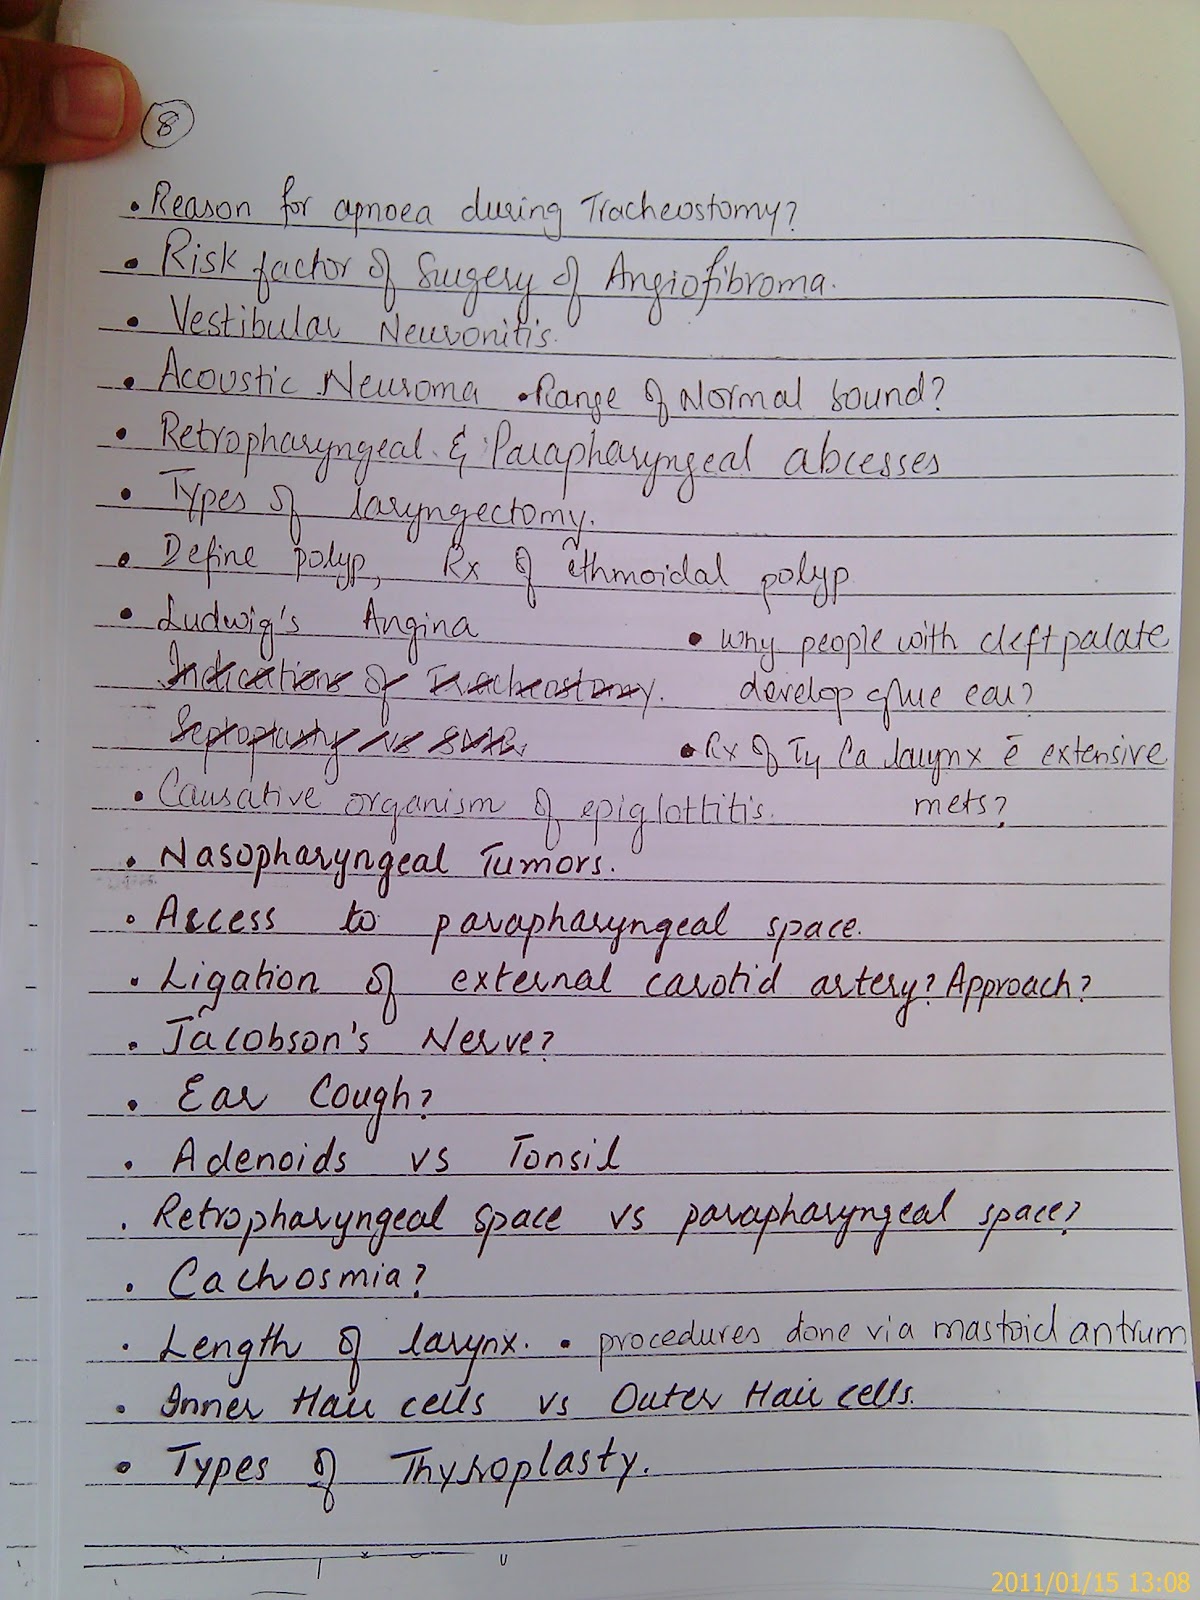 8
• Reason for apnoea during Tracheostomy?
• Risk factor of Surgery of Angiofibroma.
• Vestibular Neuronitis.
• Acoustic Neuroma • Range of Normal Sound?
• Retropharyngeal & Parapharyngeal abcesses
• Types of laryngectomy.
• Define polyp, Rx of ethmoidal polyp
• Ludwig's Angina
• why people with cleft palate
Indications of Tracheostomy.
develop glue ear?
Septoplasty vs SMR.
• Rx of T4 Ca larynx c̄ extensive
mets?
• Causative organism of epiglottitis.
• Nasopharyngeal Tumors.
• Access to parapharyngeal space.
• Ligation of external carotid artery? Approach?
• Jacobson's Nerve?
• Ear Cough?
• Adenoids vs Tonsil
• Retropharyngeal space vs parapharyngeal space?
• Cachosmia?
• Length of larynx. • procedures done via mastoid antrum
• Inner Hair cells vs Outer Hair cells.
• Types of Thyroplasty.
2011/01/15 13:08